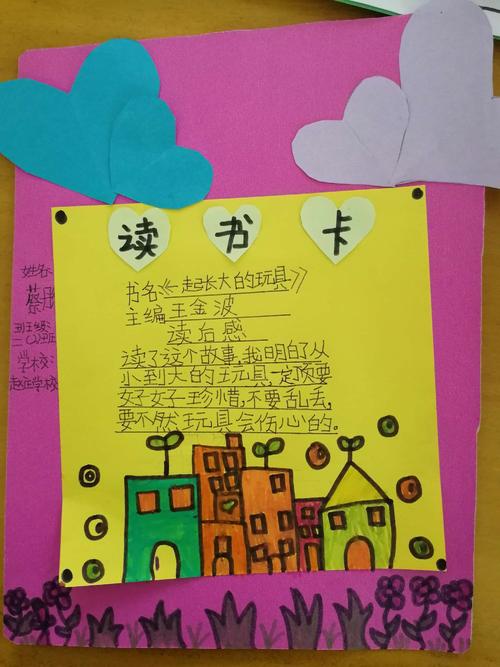 读书卡
书名《一起长大的玩具》
主编王金波
读后感
读了这个故事,我明白了从
小到大的玩具,一定须要
好好珍惜,不要乱丢,
要不然玩具会伤心的。
姓名:
蔡
班级:
二(2)班
学校:
学校